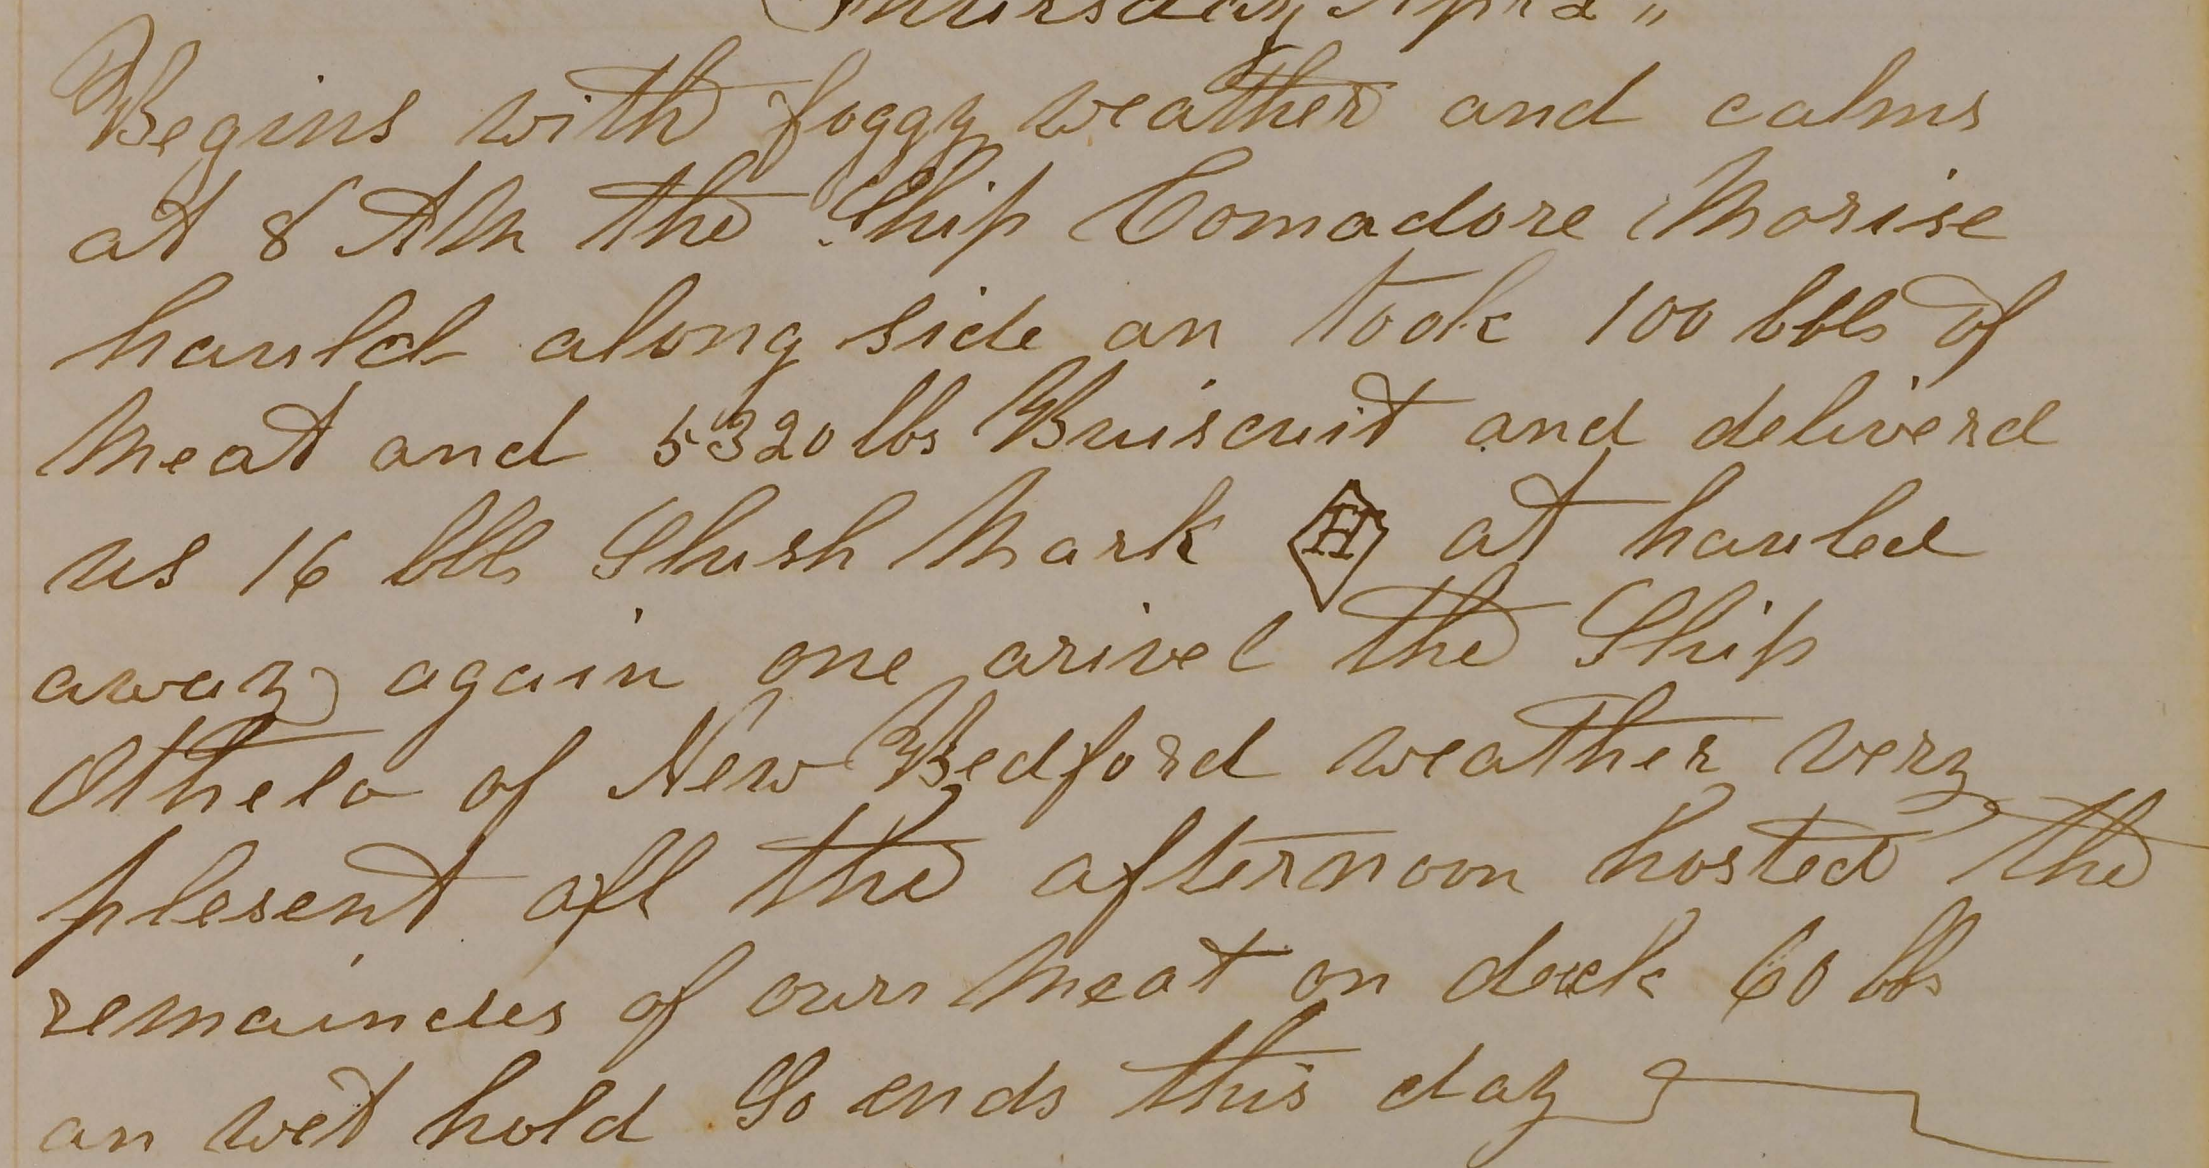 Thursday Apr 2 "
Begins with foggy weather and calms
at 8 AM the Ship Comadore Morise
hauld along side an took 100 bbls of
Meat and 5320 lbs Buiscuit and deliverd
us 16 bbls Slush Mark H at hauled
away again one arivel the Ship
Othelo of New Bedford weather very
plesent all the afternoon hosted the
remainder of ourn Meat on deck 60 bbs
an wet hold So ends this day